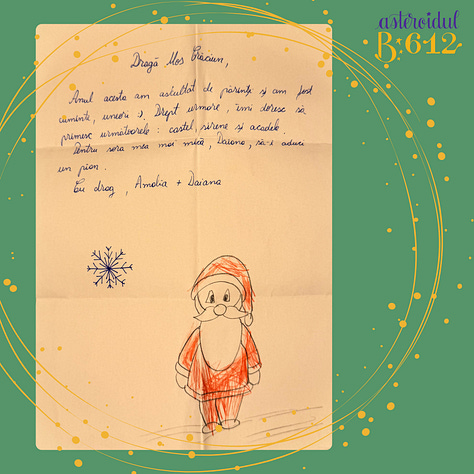 asteroidul
B:612
Dragă Moș Crăciun,
Anul acesta am ascultat de părinți și am fost
cuminte, uneori :). Drept urmare, îmi doresc să
primesc următoarele: castel, sirene și acadele.
Pentru sora mea mai mică, Daiana, să-i aduci
un pian.
Cu drag, Amalia + Daiana